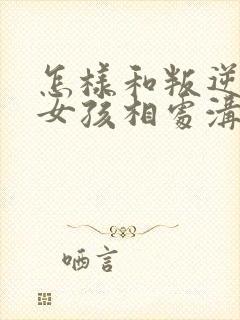 怎樣和叛逆
女孩相處溝
哂言